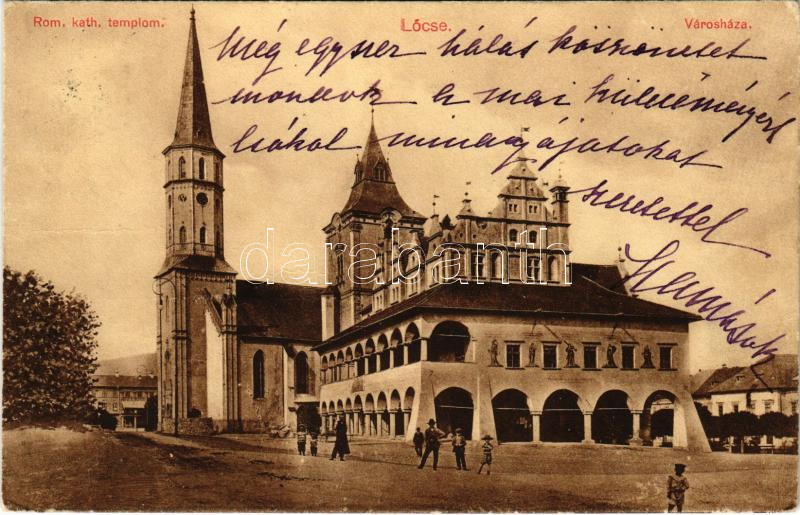 Rom. kath. templom.
Lőcse.
Városháza.
Még egyszer hálás köszönetet
mondok a mai küldeményért
mindnyájatokat
szeretettel
darabanth